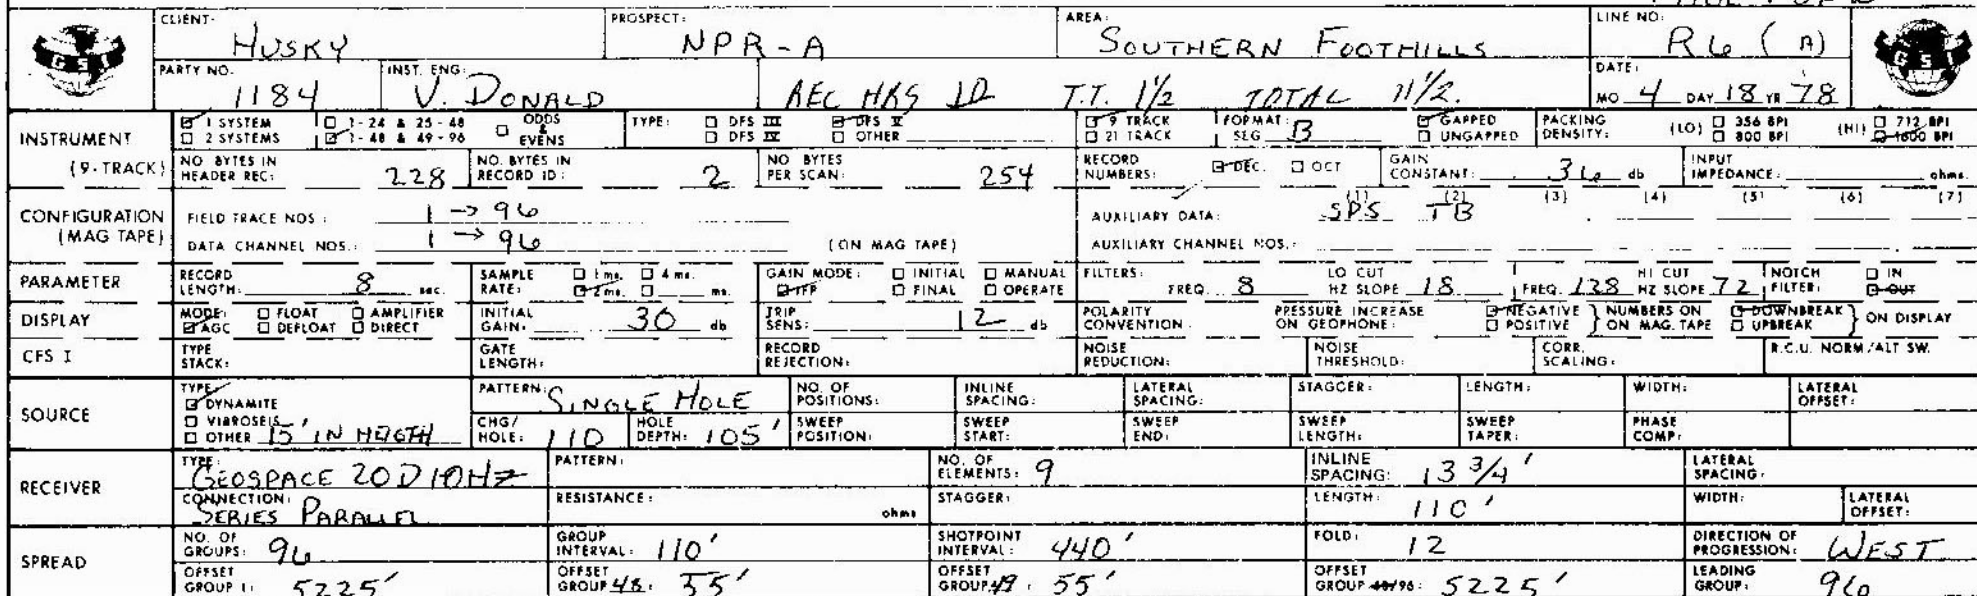 CLIENT: HUSKY PROSPECT: NPR-A AREA: SOUTHERN FOOTHILLS LINE NO: R6 (A)
GSI GSI
PARTY NO. 1184 INST. ENG: V. DONALD AEC HRS 10 T.T. 1½ TOTAL 11½. DATE: MO 4 DAY 18 YR 78
INSTRUMENT (9-TRACK) 1 SYSTEM 1-24 & 25-48 ODDS & EVENS TYPE: DFS III DFS V 9 TRACK FORMAT: SEG B GAPPED PACKING DENSITY: (LO) 356 BPI (HI) 712 BPI
2 SYSTEMS 1-48 & 49-96 DFS IV OTHER 21 TRACK UNGAPPED 800 BPI 1600 BPI
NO. BYTES IN HEADER REC: 228 NO. BYTES IN RECORD ID: 2 NO BYTES PER SCAN: 254 RECORD NUMBERS: DEC. OCT GAIN CONSTANT: 36 db INPUT IMPEDANCE: ohms.
CONFIGURATION (MAG TAPE) FIELD TRACE NOS: 1 → 96 AUXILIARY DATA: (1) SPS (2) TB (3) (4) (5) (6) (7)
DATA CHANNEL NOS.: 1 → 96 (ON MAG TAPE) AUXILIARY CHANNEL NOS.:
PARAMETER RECORD LENGTH: 8 sec. SAMPLE RATE: 1 ms. 4 ms. 2 ms. ms. GAIN MODE: INITIAL MANUAL IFP FINAL OPERATE FILTERS: FREQ. 8 LO CUT HZ SLOPE 18 FREQ. 128 HI CUT HZ SLOPE 72 NOTCH FILTER: IN OUT
DISPLAY MODE: FLOAT AMPLIFIER AGC DEFLOAT DIRECT INITIAL GAIN: 30 db TRIP SENS: 12 db POLARITY CONVENTION: PRESSURE INCREASE ON GEOPHONE: NEGATIVE POSITIVE NUMBERS ON ON MAG. TAPE DOWNBREAK UPBREAK ON DISPLAY
CFS I TYPE STACK: GATE LENGTH: RECORD REJECTION: NOISE REDUCTION: NOISE THRESHOLD: CORR. SCALING: R.C.U. NORM/ALT SW.
SOURCE TYPE: DYNAMITE PATTERN: SINGLE HOLE NO. OF POSITIONS: INLINE SPACING: LATERAL SPACING: STAGGER: LENGTH: WIDTH: LATERAL OFFSET:
VIBROSEIS OTHER 15' IN HEIGTH CHG/HOLE: 110 HOLE DEPTH: 105' SWEEP POSITION: SWEEP START: SWEEP END: SWEEP LENGTH: SWEEP TAPER: PHASE COMP:
RECEIVER TYPE: GEOSPACE 20D 10HZ PATTERN: NO. OF ELEMENTS: 9 INLINE SPACING: 13 3/4' LATERAL SPACING:
CONNECTION: SERIES PARALLEL RESISTANCE: ohms STAGGER: LENGTH: 110' WIDTH: LATERAL OFFSET:
SPREAD NO. OF GROUPS: 96 GROUP INTERVAL: 110' SHOTPOINT INTERVAL: 440' FOLD: 12 DIRECTION OF PROGRESSION: WEST
OFFSET GROUP 1: 5225' OFFSET GROUP 48: 55' OFFSET GROUP 49: 55' OFFSET GROUP 48/96: 5225' LEADING GROUP: 96